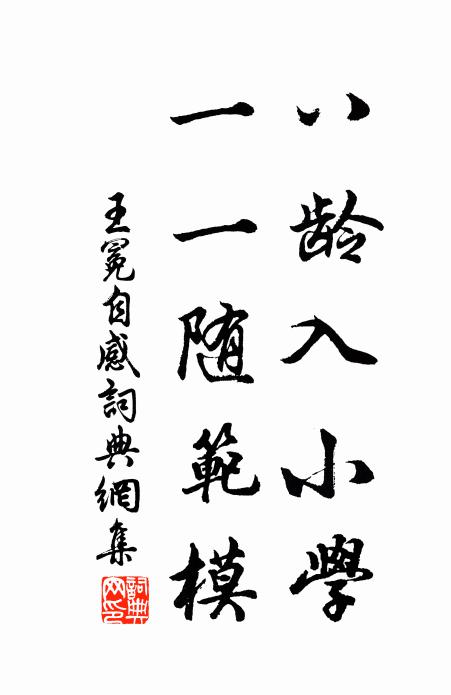 八龄入小學
一一随範模
王冕自感詞典網集
詞典網印